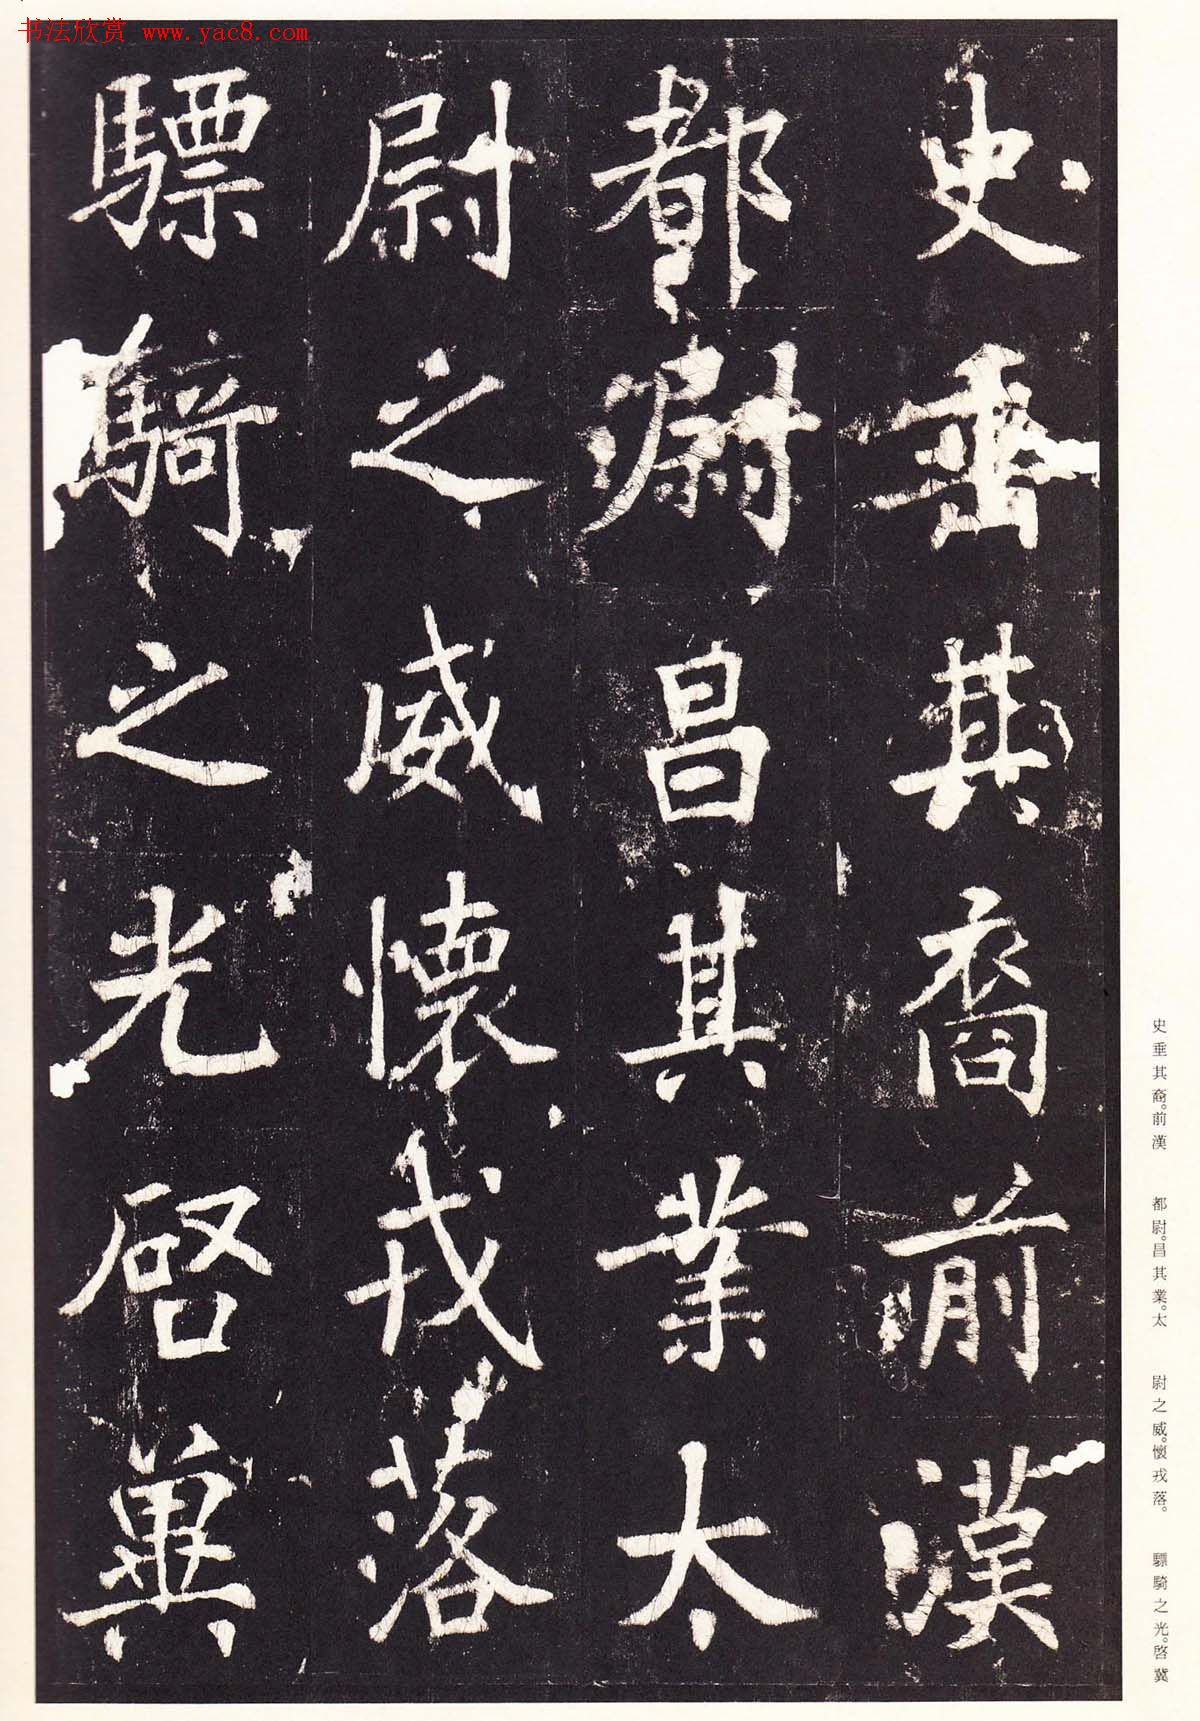 书法欣赏 www.yac8.com
史垂其裔前漢
都尉昌其業太
尉之威懷戎落
驃騎之光啓冀
史垂其裔。前漢　都尉。昌其業。太　尉之威。懷戎落。　驃騎之光。啓冀